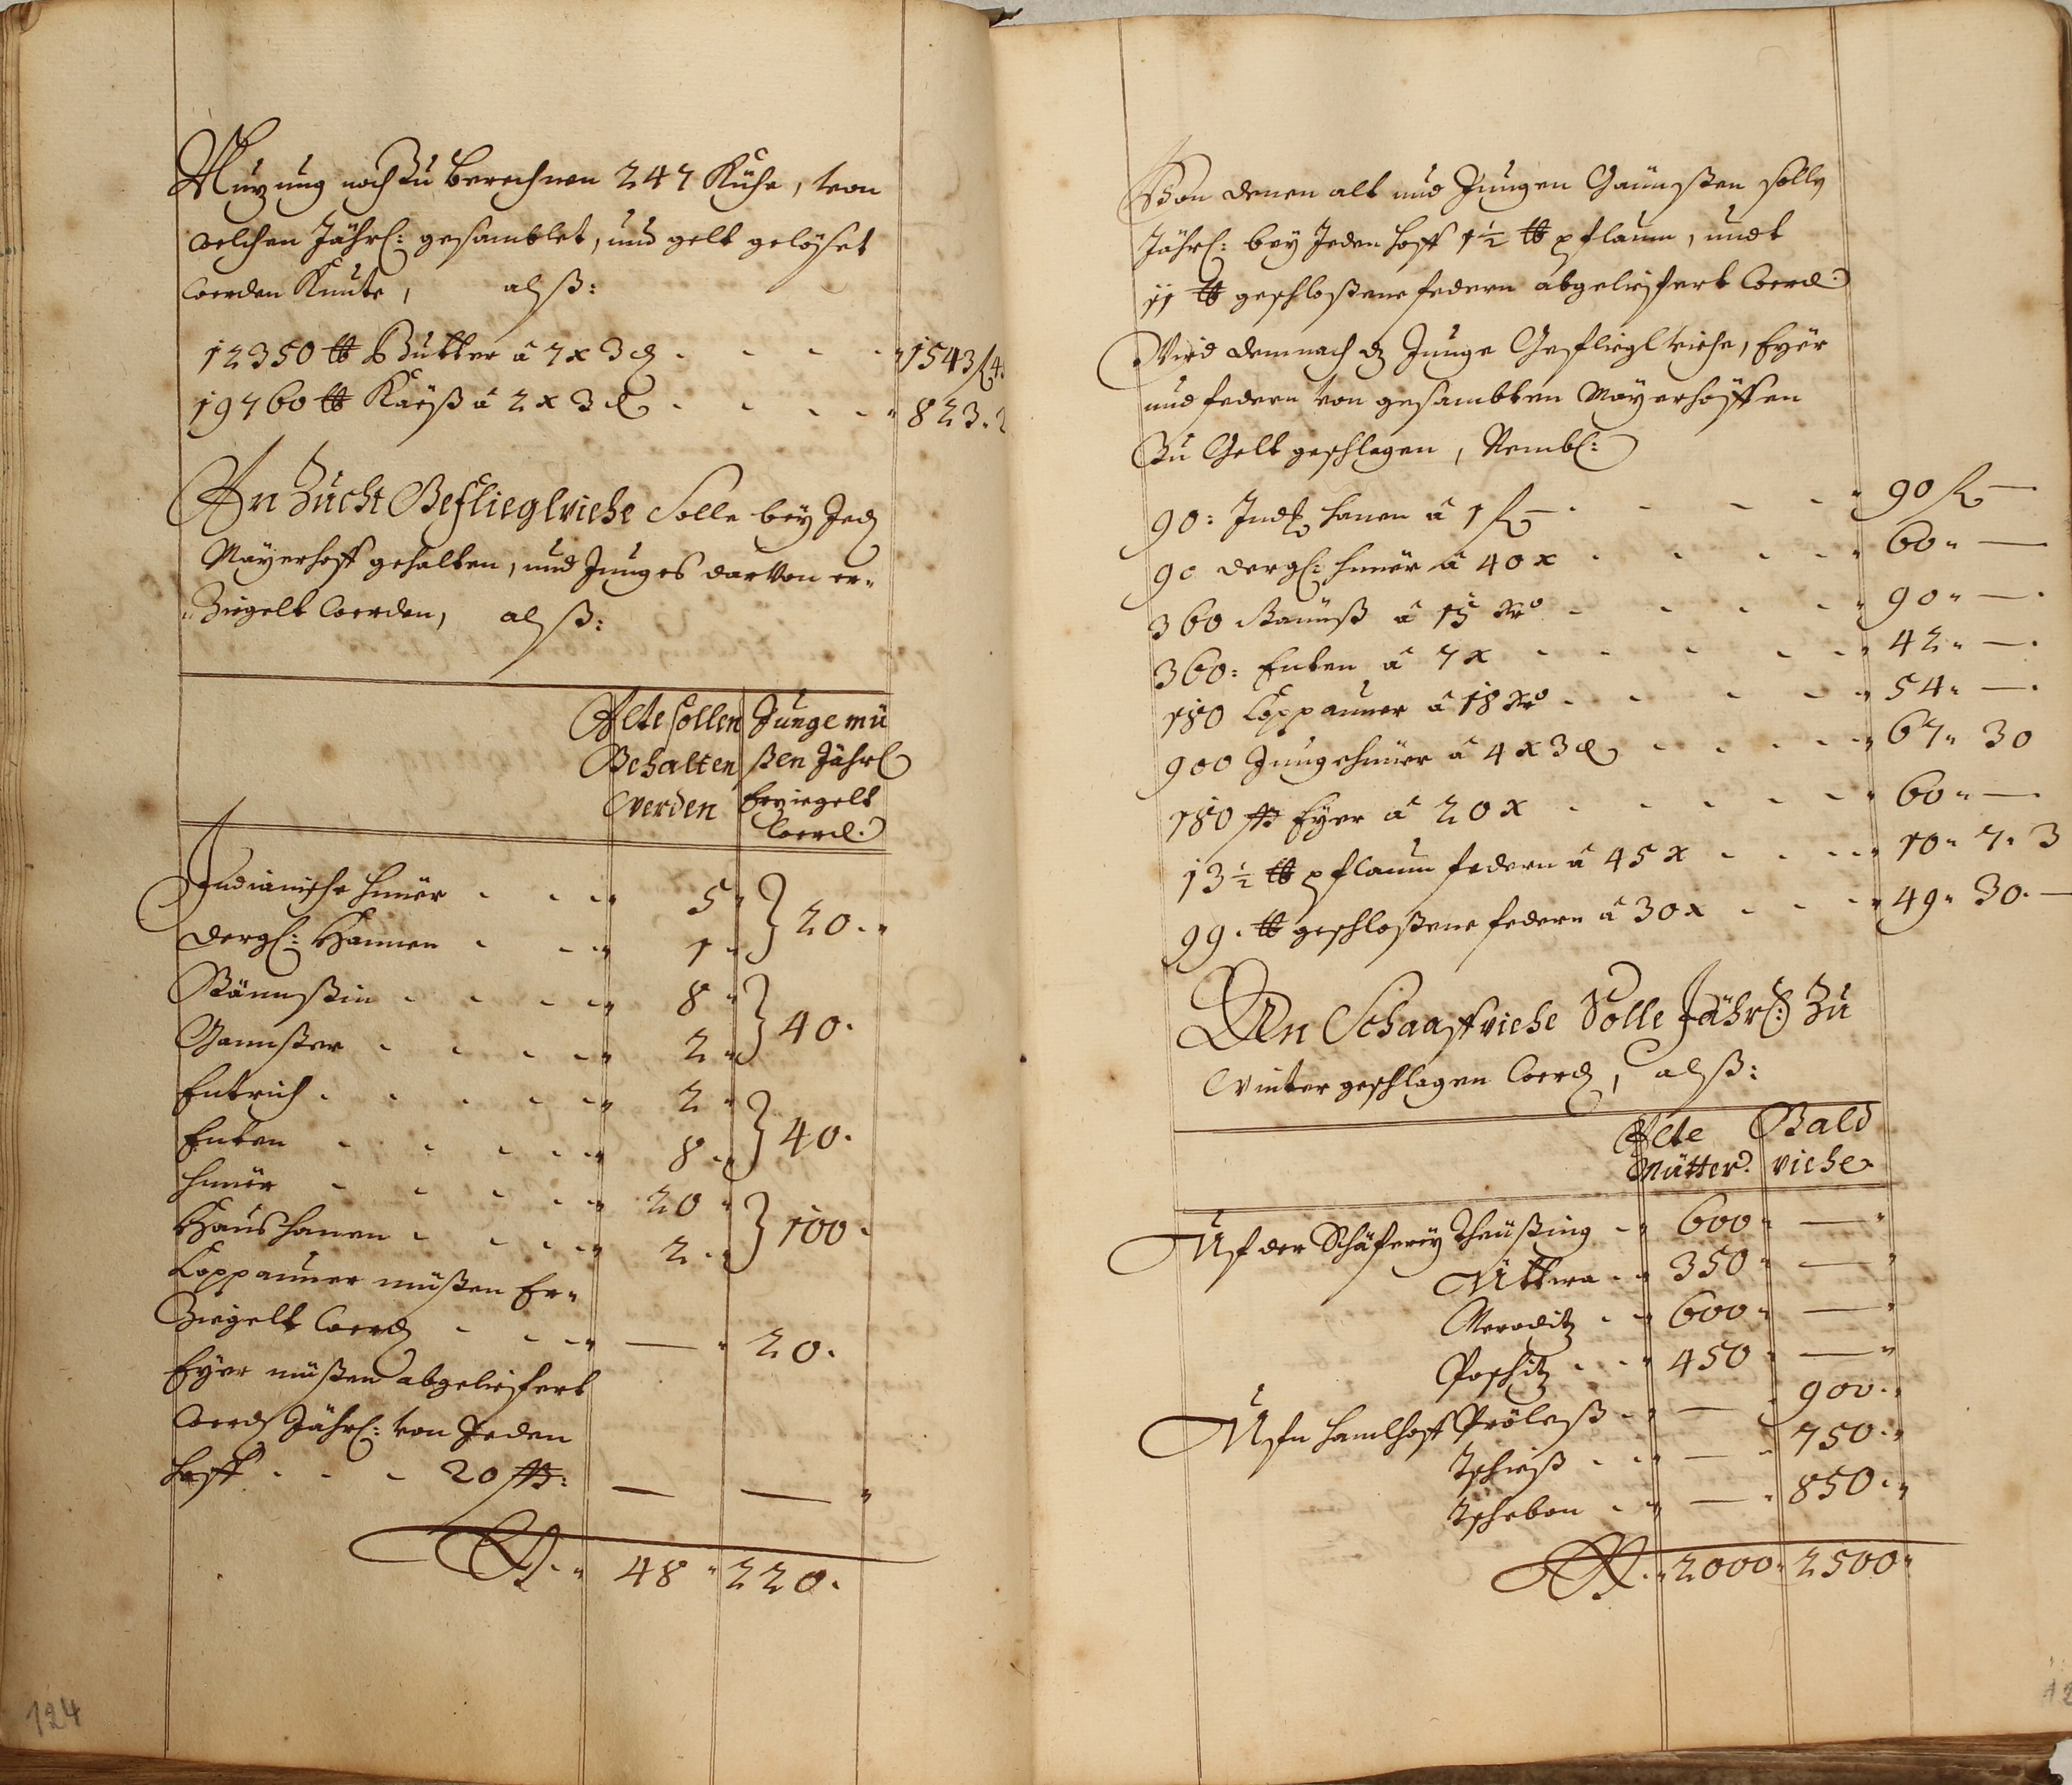 Nuzung noch Zu Berechnen 247 Kühe, von
welchen Jährl: gesamblet, und gelt gelöset
werden Knnte, alß:
12350 ℔ Butter â 7 x 3 ₰ - - - - " 1543 f 4
19760 ℔ Käeß â 2 x 3 ₰ - - - - " 823. 2
An Zucht Gefliegl viehe Solle bey Jed
Mäyerhoff gehalten, und Junges darVon er-
Ziegelt werden, alß:
Alte sollen Junge mü
Behalten ßen Jährl
werden Erziegelt
werd.
Indianische hüner - - - 5 " } 20. "
dergl: Hannen - - - 1 "
Gännßin - - - - 8 " } 40.
Gannßer - - - - 2 "
Entrich - - - - 2 " } 40.
Enten - - - - 8 "
hüner - - - - 20 " } 100.
Haus hanen - - - - 2 "
Coppauner müßen Er-
Ziegelt werd - - - — " 20.
Eyer müßen abgeliefert
werd Jährl: von Jeden
hoff - - - 20 ßß: — — "
48 " 220.
124
Von denen alt und Jungen Gäünßen solln
Jährl: bey Jeden hoff 1½ ℔ pflaum, undt
11 ℔ geschloßene federn abgeliefert werd.
Wird demnach dz Junge Gefliegl viehe, Eyer
und federn von gesambten Mäyerhöffen
Zu Gelt geschlagen, Nembl:
90: Ind: hanen â 1 f — - - - - " 90 f —
90 dergl: hüner â 40 x - - - - " 60 " —
360 Gännß â 15 xr - - - - " 90 " — .
360: Enten â 7 x - - - - " 42 " — .
180 Coppauner â 18 xr - - - - " 54 " — .
900 Junge hüner â 4 x 3 ₰ - - - - " 67 " 30
180 ßß Eyer â 20 x - - - - " 60 " —
13½ ℔ pflaum federn â 45 x - - - - " 10 " 7 " 3
99. ℔ geschloßene federn â 30 x - - - " 49 " 30. —
An Schaaff viehe Solle Jährl: Zu
Winter geschlagen werd, alß:
Alte Gald
Mütter. viehe.
Uf der Schäferey Theüßing - " 600 " — "
Uttwa - " 350 " — "
Neroditz - " 600 " — "
Poschitz - - " 450 " — "
Ufn hamlhoff Pröleß - " — " 900. "
Tschieß - - " — " 750. "
Tschebon - " — " 850. "
" 2000 " 2500 "
12